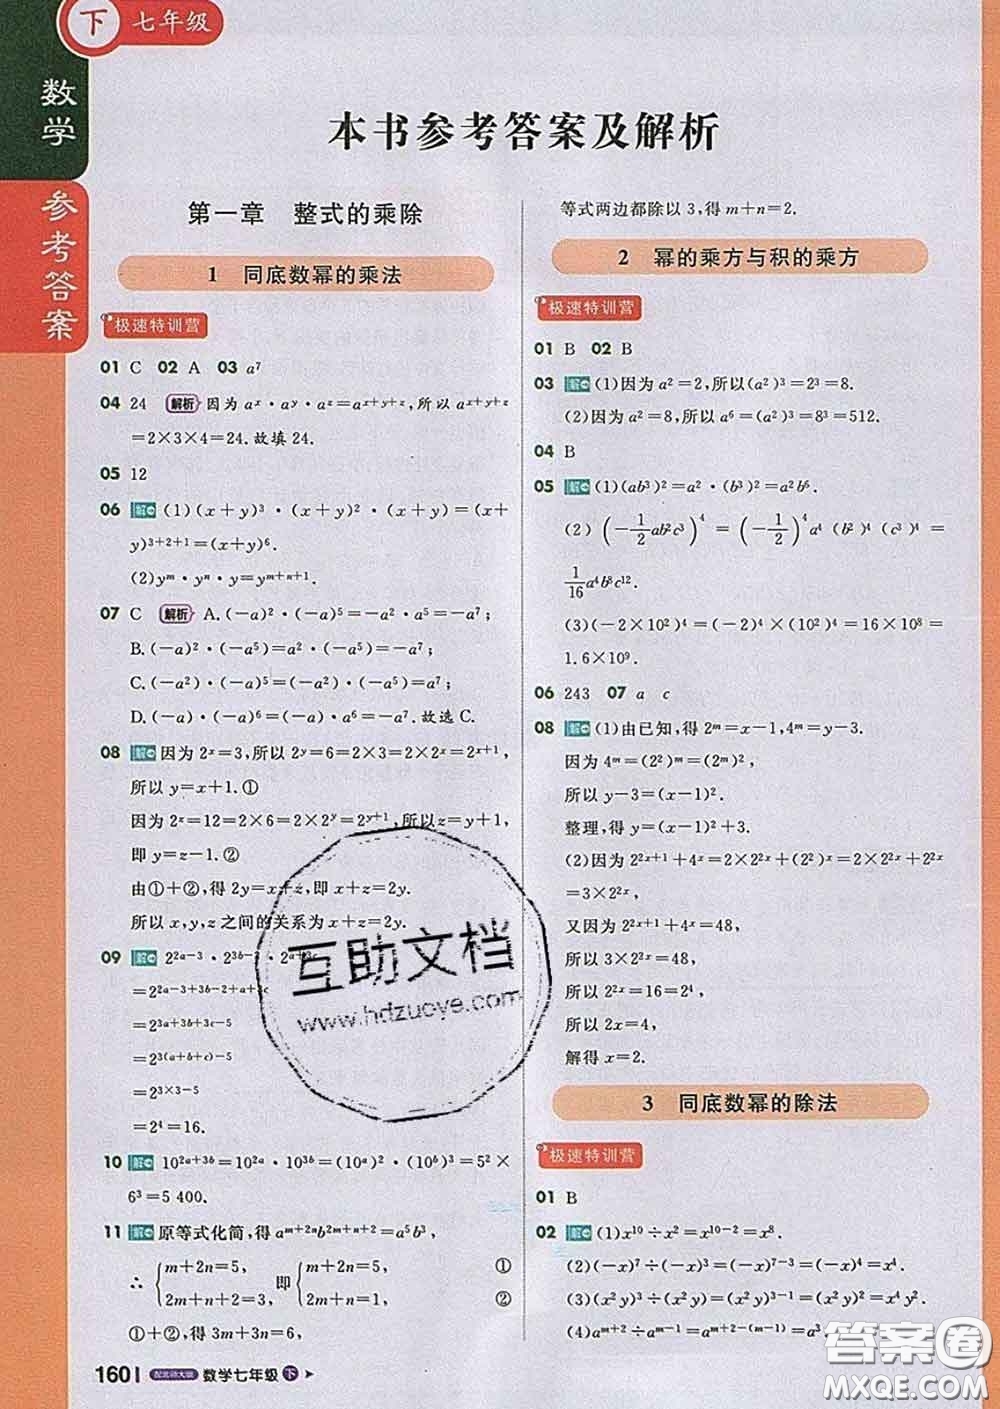 下 七年级
数学
参考答案
本书参考答案及解析
第一章 整式的乘除
1 同底数幂的乘法
极速特训营
01 C 02 A 03 a⁷
04 24 解析 因为 aˣ·aʸ·aᶻ=aˣ⁺ʸ⁺ᶻ,所以 aˣ⁺ʸ⁺ᶻ
=2×3×4=24.故填 24.
05 12
06 解 (1)(x+y)³·(x+y)²·(x+y)=(x+
y)³⁺²⁺¹=(x+y)⁶.
(2)yᵐ·yⁿ·y=yᵐ⁺ⁿ⁺¹.
07 C 解析 A.(-a)²·(-a)⁵=-a²·a⁵=-a⁷;
B.(-a)²·(-a⁵)=a²·(-a⁵)=-a⁷;
C.(-a²)·(-a)⁵=(-a²)·(-a⁵)=a⁷;
D.(-a)·(-a)⁶=(-a)·a⁶=-a⁷.故选 C.
08 解 因为 2ˣ=3,所以 2ʸ=6=2×3=2×2ˣ=2ˣ⁺¹,
所以 y=x+1.①
因为 2ᶻ=12=2×6=2×2ʸ=2ʸ⁺¹,所以 z=y+1,
即 y=z-1.②
由①+②,得 2y=x+z,即 x+z=2y.
所以 x,y,z 之间的关系为 x+z=2y.
09 解 2^(2a-3)·2^(3b-2)·2^(a+3c)
=2^(2a-3+3b-2+a+3c)
=2^(3a+3b+3c-5)
=2^(3(a+b+c)-5)
=2^(3×3-5)
=2⁴=16.
10 解 10^(2a+3b)=10^(2a)·10^(3b)=(10ᵃ)²·(10ᵇ)³=5²×
6³=5 400.
11 解 原等式化简,得 a^(m+2n)b^(2m+n+2)=a⁵b³,
∴ {m+2n=5, 即 {m+2n=5, ①
2m+n+2=3, 2m+n=1, ②
①+②,得 3m+3n=6,
等式两边都除以 3,得 m+n=2.
2 幂的乘方与积的乘方
极速特训营
01 B 02 B
03 解 (1)因为 a²=2,所以(a²)³=2³=8.
(2)因为 a²=8,所以 a⁶=(a²)³=8³=512.
04 B
05 解 (1)(ab³)²=a²·(b³)²=a²b⁶.
(2)(-1/2 ab²c³)⁴=(-1/2)⁴a⁴(b²)⁴(c³)⁴=
1/16 a⁴b⁸c¹².
(3)(-2×10²)⁴=(-2)⁴×(10²)⁴=16×10⁸=
1.6×10⁹.
06 243 07 a c
08 解 (1)由已知,得 2ᵐ=x-1,4ᵐ=y-3.
因为 4ᵐ=(2²)ᵐ=(2ᵐ)²,
所以 y-3=(x-1)².
整理,得 y=(x-1)²+3.
(2)因为 2^(2x+1)+4ˣ=2×2^(2x)+(2²)ˣ=2×2^(2x)+2^(2x)
=3×2^(2x),
又因为 2^(2x+1)+4ˣ=48,
所以 3×2^(2x)=48,
所以 2^(2x)=16=2⁴,
所以 2x=4,
解得 x=2.
3 同底数幂的除法
极速特训营
01 B
02 解 (1)x¹⁰÷x²=x¹⁰⁻²=x⁸.
(2)(-x)⁷÷(-x)³=(-x)⁷⁻³=(-x)⁴=x⁴.
(3)(x²y)³÷(x²y)=(x²y)³⁻¹=(x²y)²=x⁴y².
(4)a^(m+2)÷a^(m-1)=a^(m+2-m+1)=a³.
160 配北师大版 数学七年级 下
互助文档
www.hdzuoye.com
答案圈
MXQE.COM